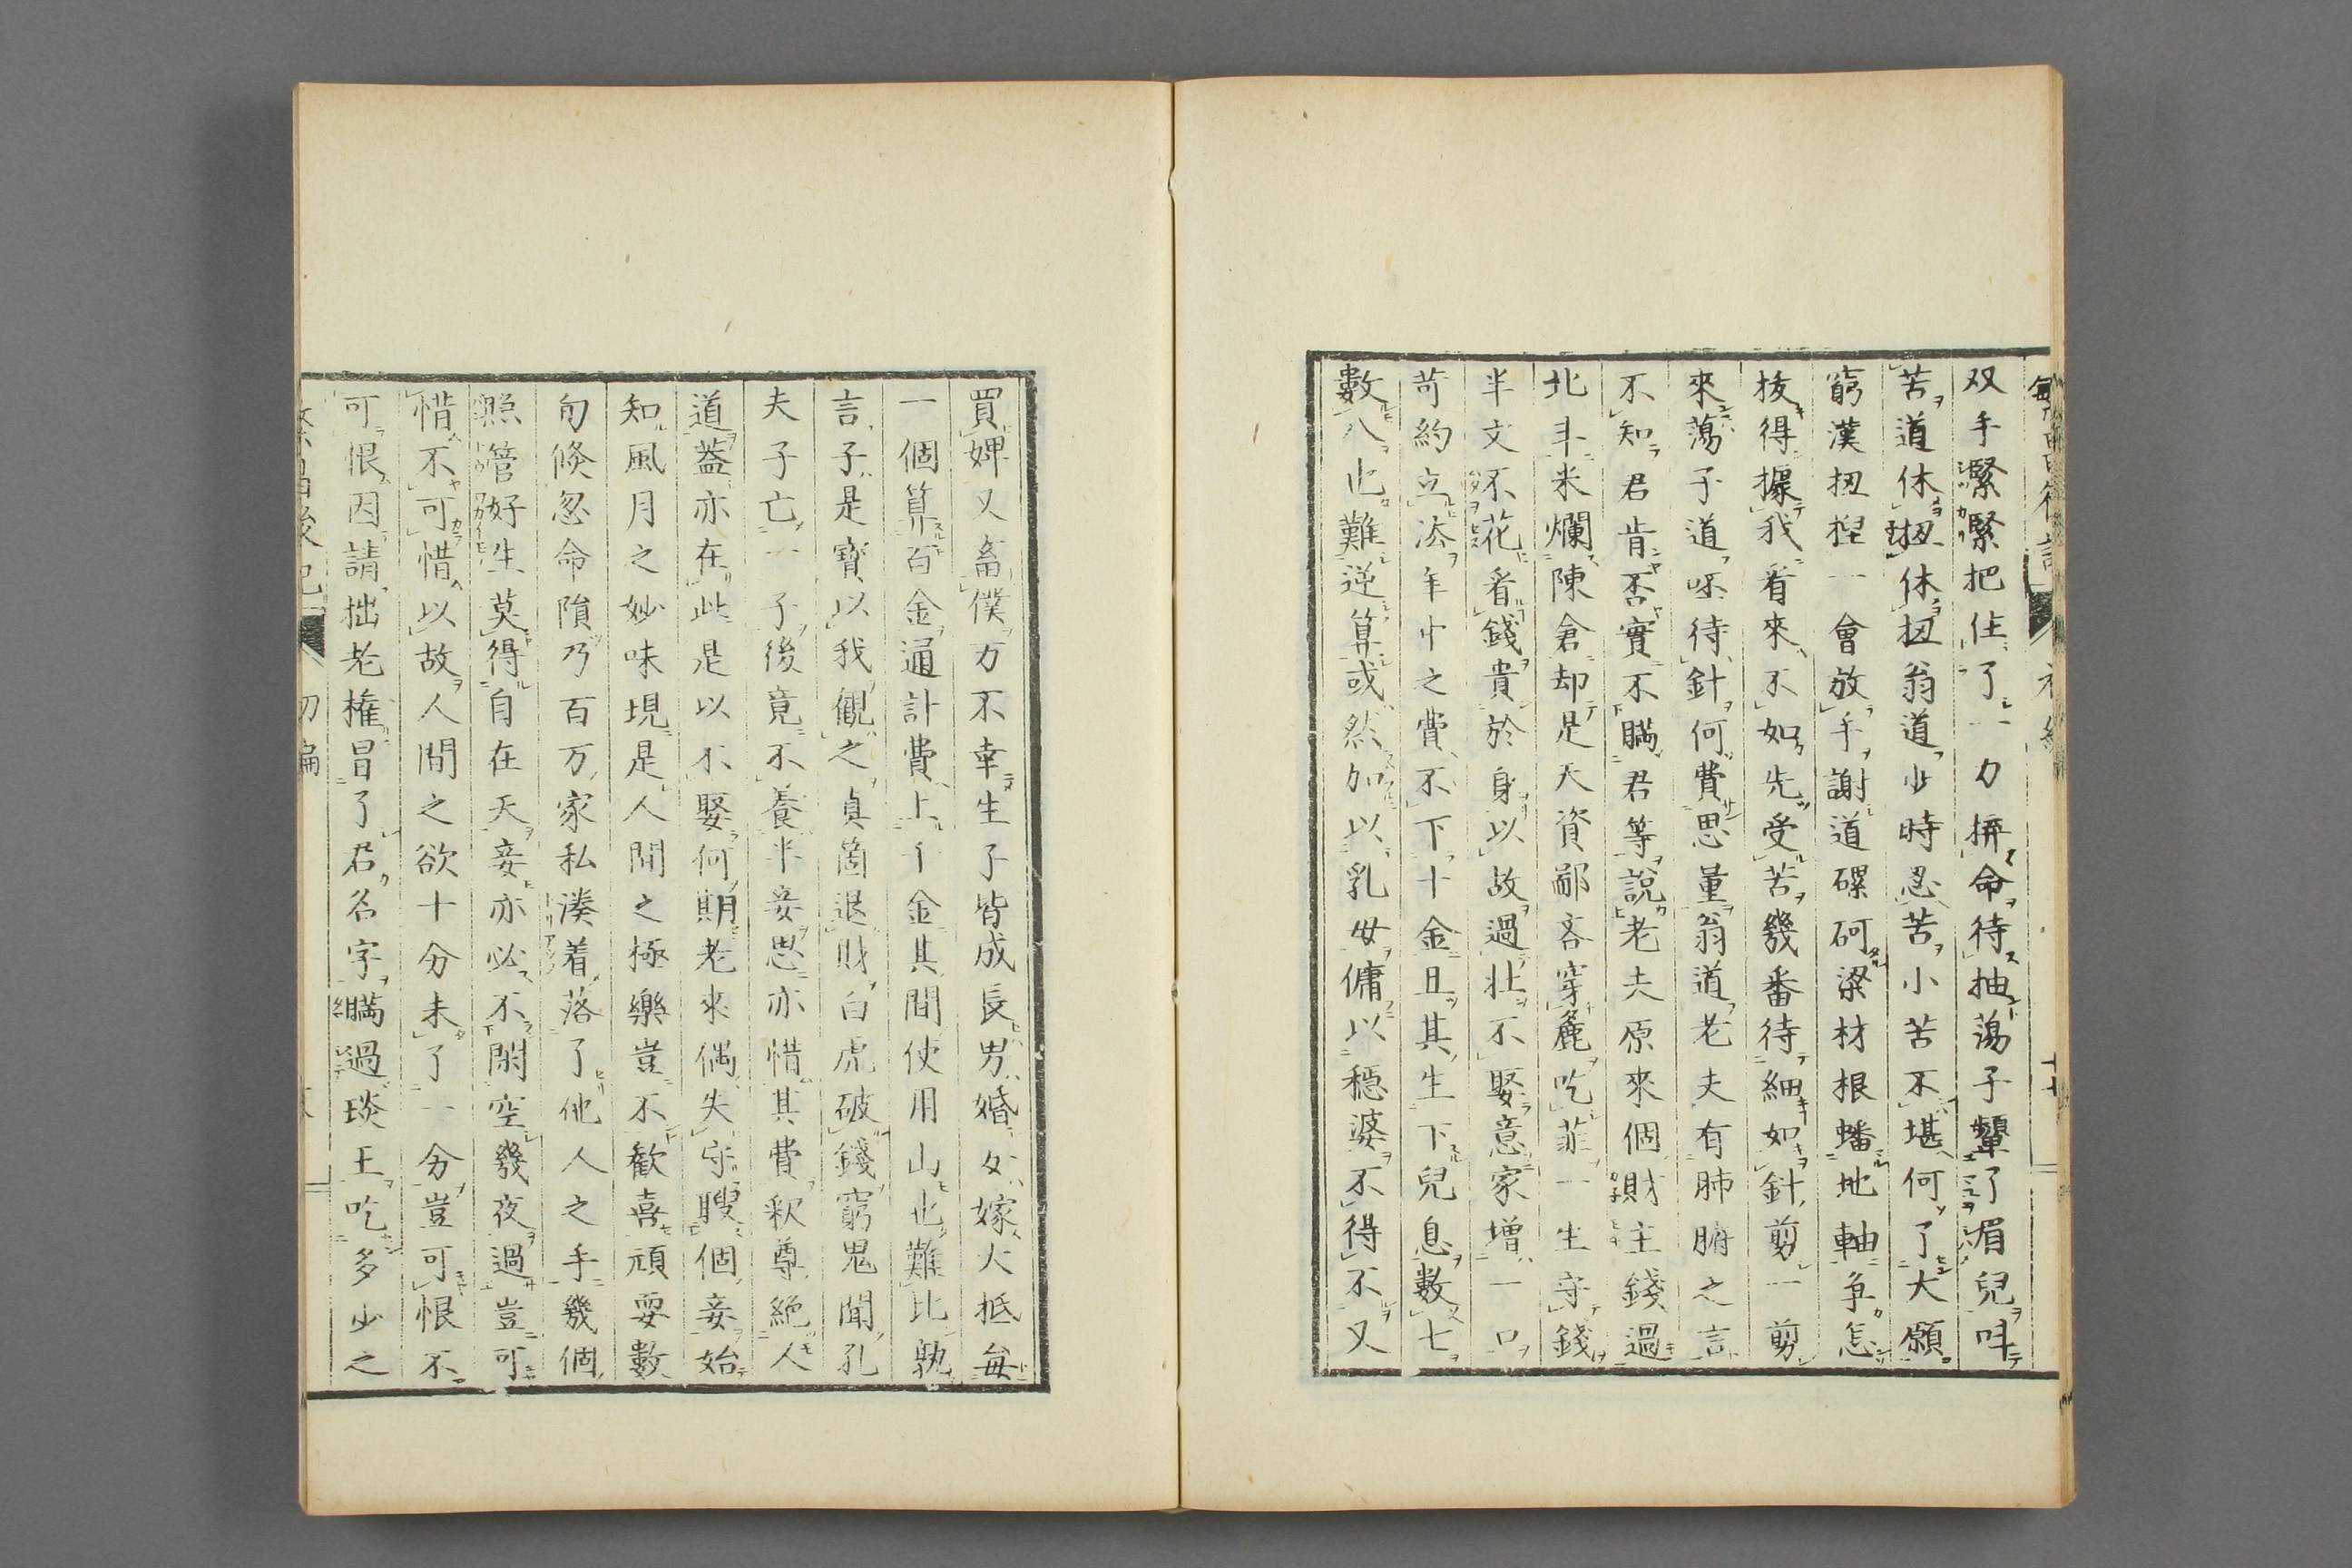 双手緊緊把住了一力拚命待抽蕩子顰了眉兒呌
苦道休扭休扭翁道少時忍苦小苦不堪何了大願
窮漢扭捏一會放手謝道磥砢梁材根蟠地軸争怎
拔得據我看來不如先受苦幾番待細如針剪一剪
來蕩子道呸待針何費思量翁道老夫有肺腑之言
不知君肯否實不瞞君等說老夫原來個財主錢過
北斗米爛陳倉却是天資鄙吝穿麁吃菲一生守錢
半文不花看錢貴於身以故過壯不娶意家增一口
苛約立法年中之費不下十金且其生下兒息數七
數八也難逆算或然加以乳母傭以穩婆不得不又
買婢又畜僕万不幸生子皆成長男婚女嫁大抵每
一個算百金通計費上千金其間使用山也難比孰
言子是寶以我觀之眞箇退財白虎破錢窮鬼聞孔
夫子亡一子後竟不養半妾思亦惜其費釈尊絶人
道蓋亦在此是以不娶何期老來偶失守瞍個妾始
知風月之妙味現是人間之極樂豈不歓喜頑耍數
旬倏忽命隕乃百万家私湊着落了他人之手幾個
照管好生莫得自在天妾亦必不閑空幾夜過豈可
惜不可惜以故人間之欲十分未了一分豈可恨不
可恨因請拙老権冒了君名字瞞過琰王吃多少之